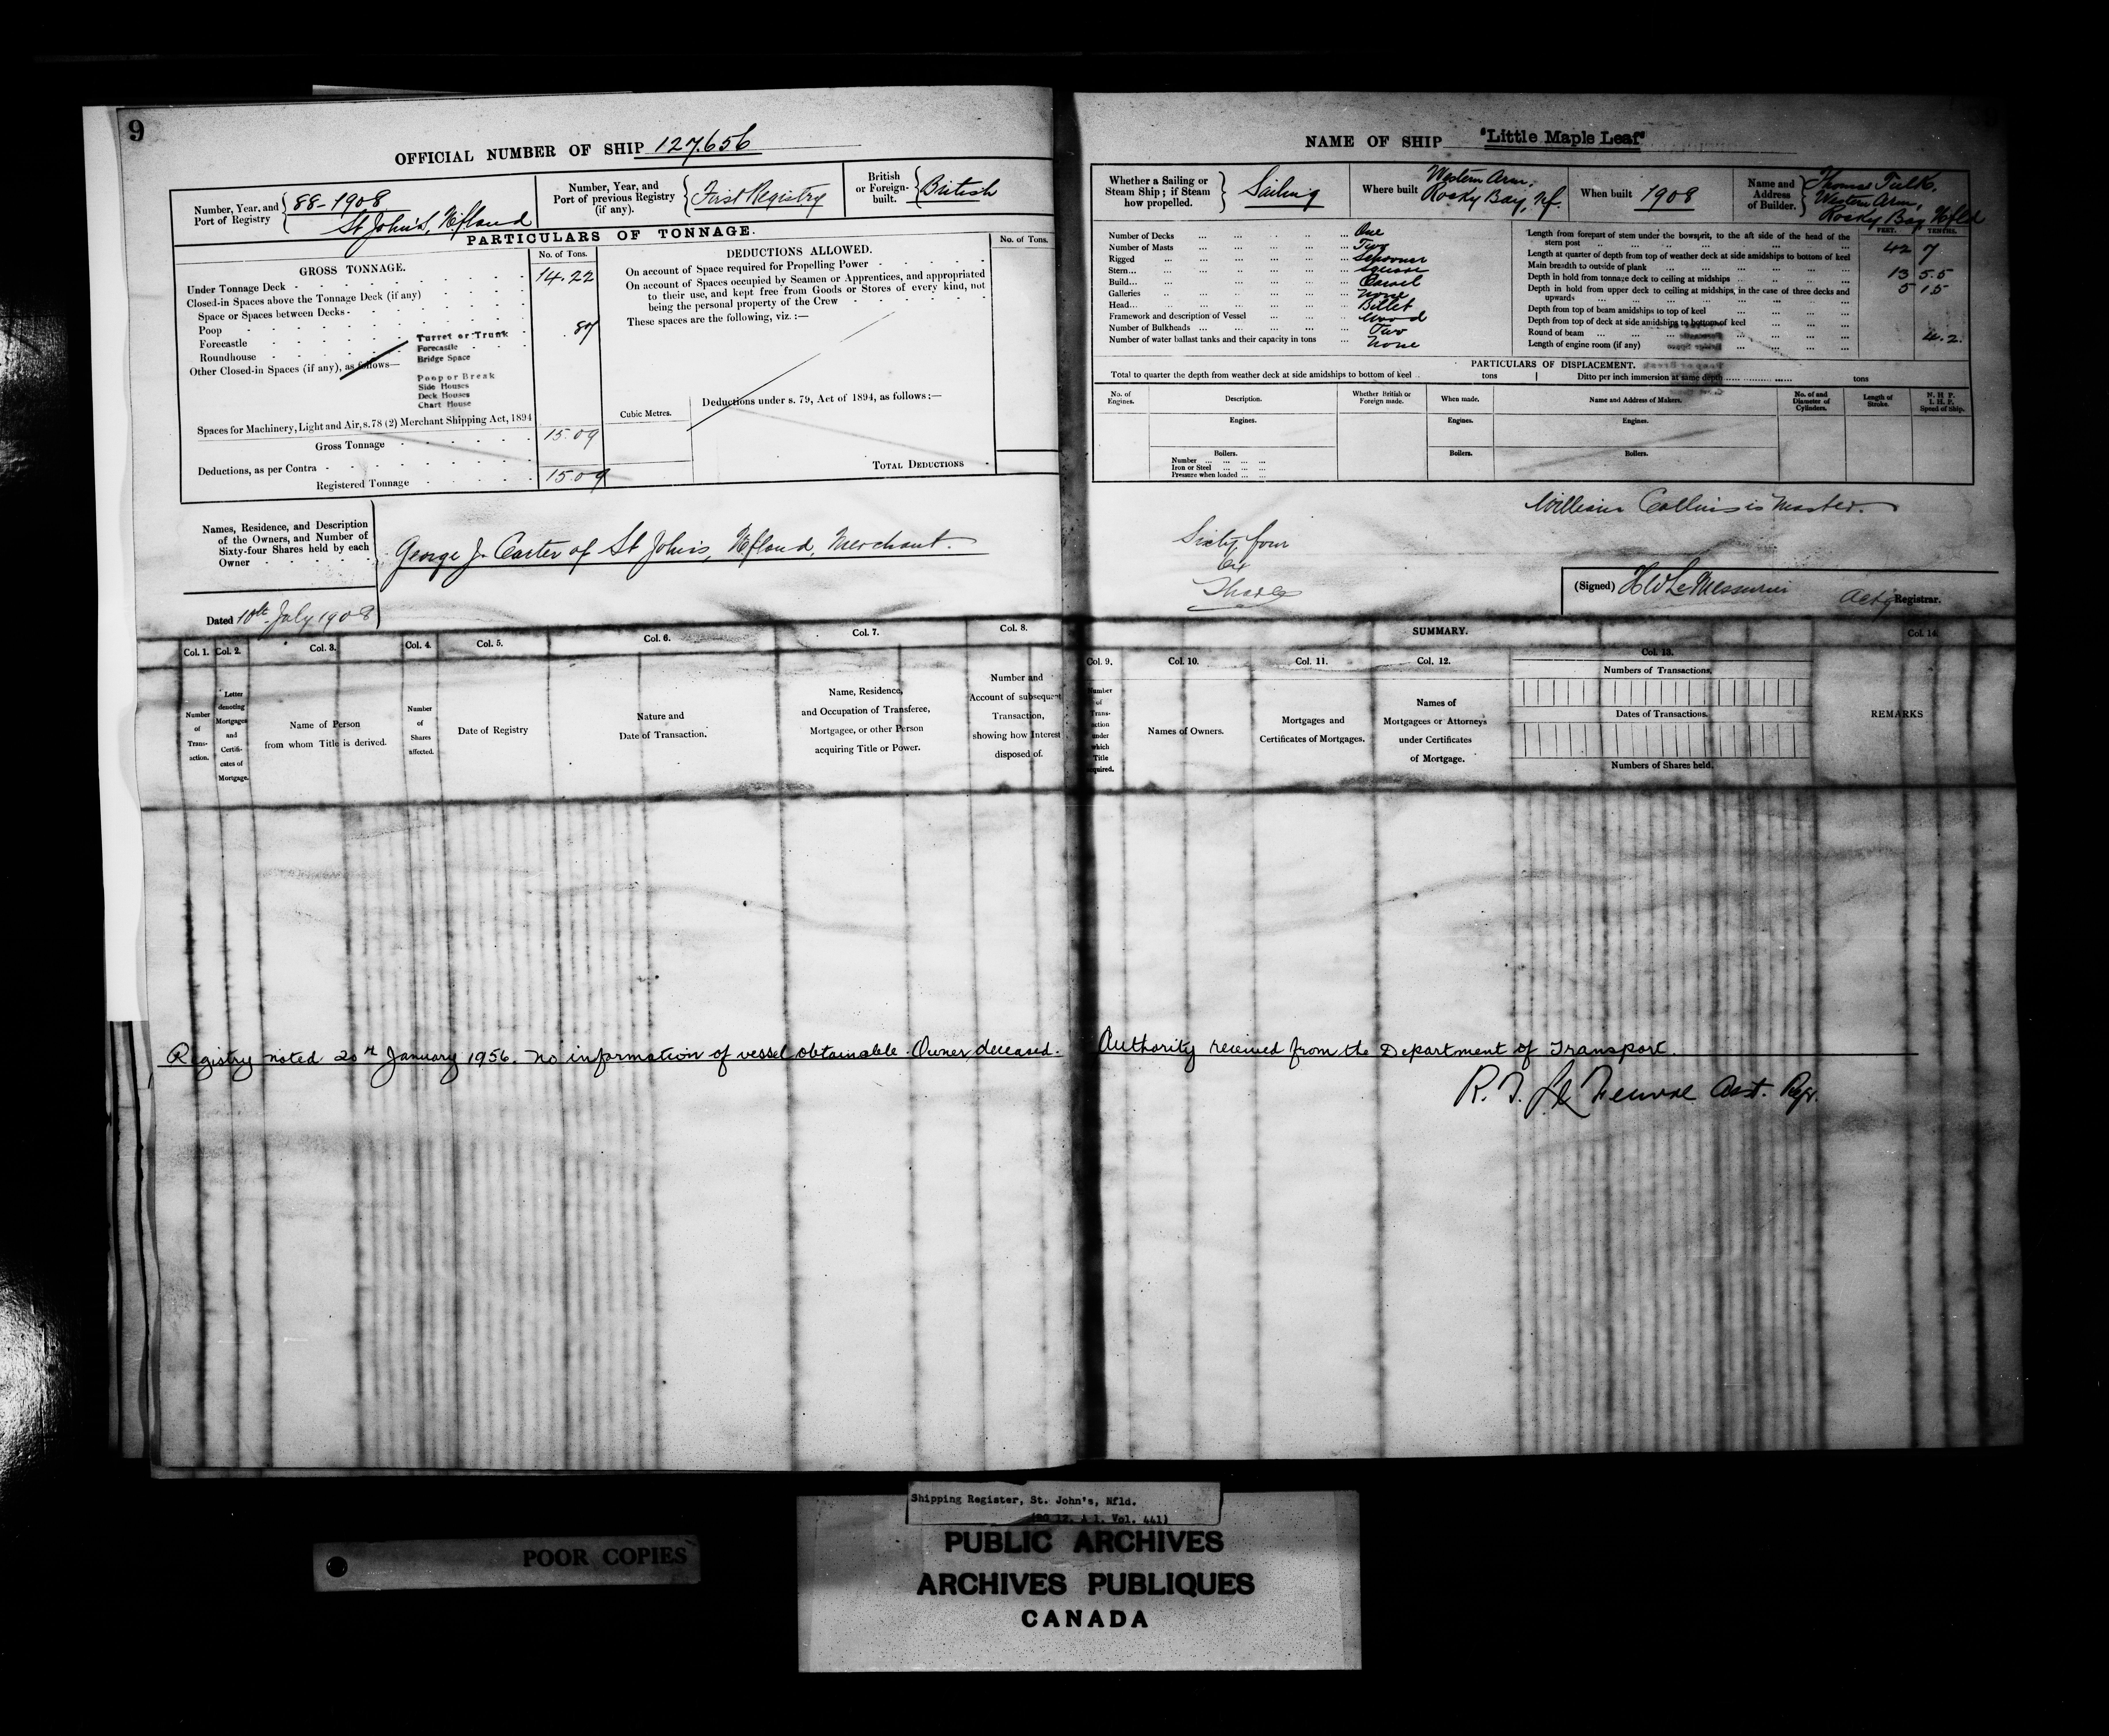 9
OFFICIAL NUMBER OF SHIP 127.656
Number, Year, and Port of Registry
88-1908
St John's, Nfland
Number, Year, and Port of previous Registry (if any).
First Registry
British or Foreign-built.
British
PARTICULARS OF TONNAGE.
GROSS TONNAGE.
No. of Tons.
Under Tonnage Deck 14.22
Closed-in Spaces above the Tonnage Deck (if any)
Space or Spaces between Decks
Poop
Forecastle
Roundhouse
Other Closed-in Spaces (if any), as follows—
Turret or Trunk .87
Forecastle
Bridge Space
Poop or Break
Side Houses
Deck Houses
Chart House
Spaces for Machinery, Light and Air, s. 78 (2) Merchant Shipping Act, 1894
Gross Tonnage 15.09
Deductions, as per Contra
Registered Tonnage 15.09
DEDUCTIONS ALLOWED.
No. of Tons.
On account of Space required for Propelling Power
On account of Spaces occupied by Seamen or Apprentices, and appropriated
to their use, and kept free from Goods or Stores of every kind, not
being the personal property of the Crew
These spaces are the following, viz. :—
Cubic Metres.
Deductions under s. 79, Act of 1894, as follows :—
TOTAL DEDUCTIONS
Names, Residence, and Description
of the Owners, and Number of
Sixty-four Shares held by each
Owner
George J. Carter of St John's, Nfland, Merchant.
Dated 10th July 1908
Col. 1. Col. 2. Col. 3. Col. 4. Col. 5. Col. 6. Col. 7. Col. 8.
Number of Transaction.
Letter denoting Mortgages and Certificates of Mortgage.
Name of Person
from whom Title is derived.
Number of Shares affected.
Date of Registry
Nature and
Date of Transaction.
Name, Residence,
and Occupation of Transferee,
Mortgagee, or other Person
acquiring Title or Power.
Number and
Account of subsequent
Transaction,
showing how Interest
disposed of.
NAME OF SHIP "Little Maple Leaf"
Whether a Sailing or
Steam Ship ; if Steam
how propelled.
Sailing
Where built
Western Arm,
Rocky Bay, Nf.
When built 1908
Name and
Address
of Builder.
Thomas Tulk,
Western Arm,
Rocky Bay Nfld
Number of Decks One
Number of Masts Two
Rigged Schooner
Stern Square
Build Carvel
Galleries None
Head Billet
Framework and description of Vessel Wood
Number of Bulkheads Two
Number of water ballast tanks and their capacity in tons None
FEET. TENTHS.
Length from forepart of stem under the bowsprit, to the aft side of the head of the
stern post 42 7
Length at quarter of depth from top of weather deck at side amidships to bottom of keel
Main breadth to outside of plank 13 5.5
Depth in hold from tonnage deck to ceiling at midships 5 15
Depth in hold from upper deck to ceiling at midships, in the case of three decks and
upwards
Depth from top of beam amidships to top of keel
Depth from top of deck at side amidships to bottom of keel
Round of beam 4.2.
Length of engine room (if any)
PARTICULARS OF DISPLACEMENT.
Total to quarter the depth from weather deck at side amidships to bottom of keel tons
Ditto per inch immersion at same depth tons
No. of Engines.
Description.
Whether British or Foreign made.
When made.
Name and Address of Makers.
No. of and Diameter of Cylinders.
Length of Stroke.
N. H. P.
I. H. P.
Speed of Ship.
Engines. Engines. Engines.
Boilers. Boilers. Boilers.
Number
Iron or Steel
Pressure when loaded
William Collins is Master.
Sixty four
Shares
(Signed) H W LeMessurier Actg Registrar.
SUMMARY.
Col. 9. Col. 10. Col. 11. Col. 12. Col. 13. Col. 14.
Number of Transaction under which Title acquired.
Names of Owners.
Mortgages and
Certificates of Mortgages.
Names of
Mortgagees or Attorneys
under Certificates
of Mortgage.
Numbers of Transactions.
Dates of Transactions.
Numbers of Shares held.
REMARKS
Registry noted 20th January 1956. No information of vessel obtainable. Owner deceased. Authority received from the Department of Transport.
Asst. Regr.
Shipping Register, St. John's, Nfld.
(RG 12, A 1, Vol. 441)
POOR COPIES
PUBLIC ARCHIVES
ARCHIVES PUBLIQUES
CANADA